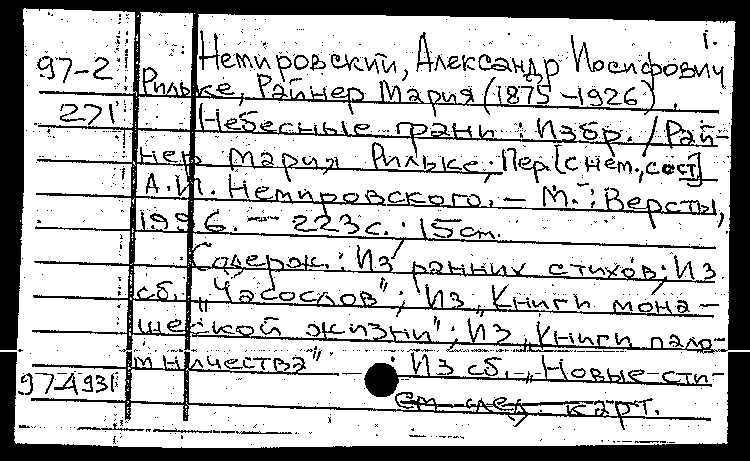 1.
Немировский, Александр Иосифович
97-2 Рильке, Райнер Мария (1875-1926).
271 Небесные грани: Избр. / Рай-
нер Мария Рильке; Пер. [с нем., сост]
А.И. Немировского. - М.: Версты,
1996. - 223с.; 15см.
Содерж.: Из ранних стихов; Из
сб. „Часослов"; Из „Книги мона-
шеской жизни"; Из „Книги пало-
мничества" : Из сб. „Новые сти-
97-4931
См след. карт.